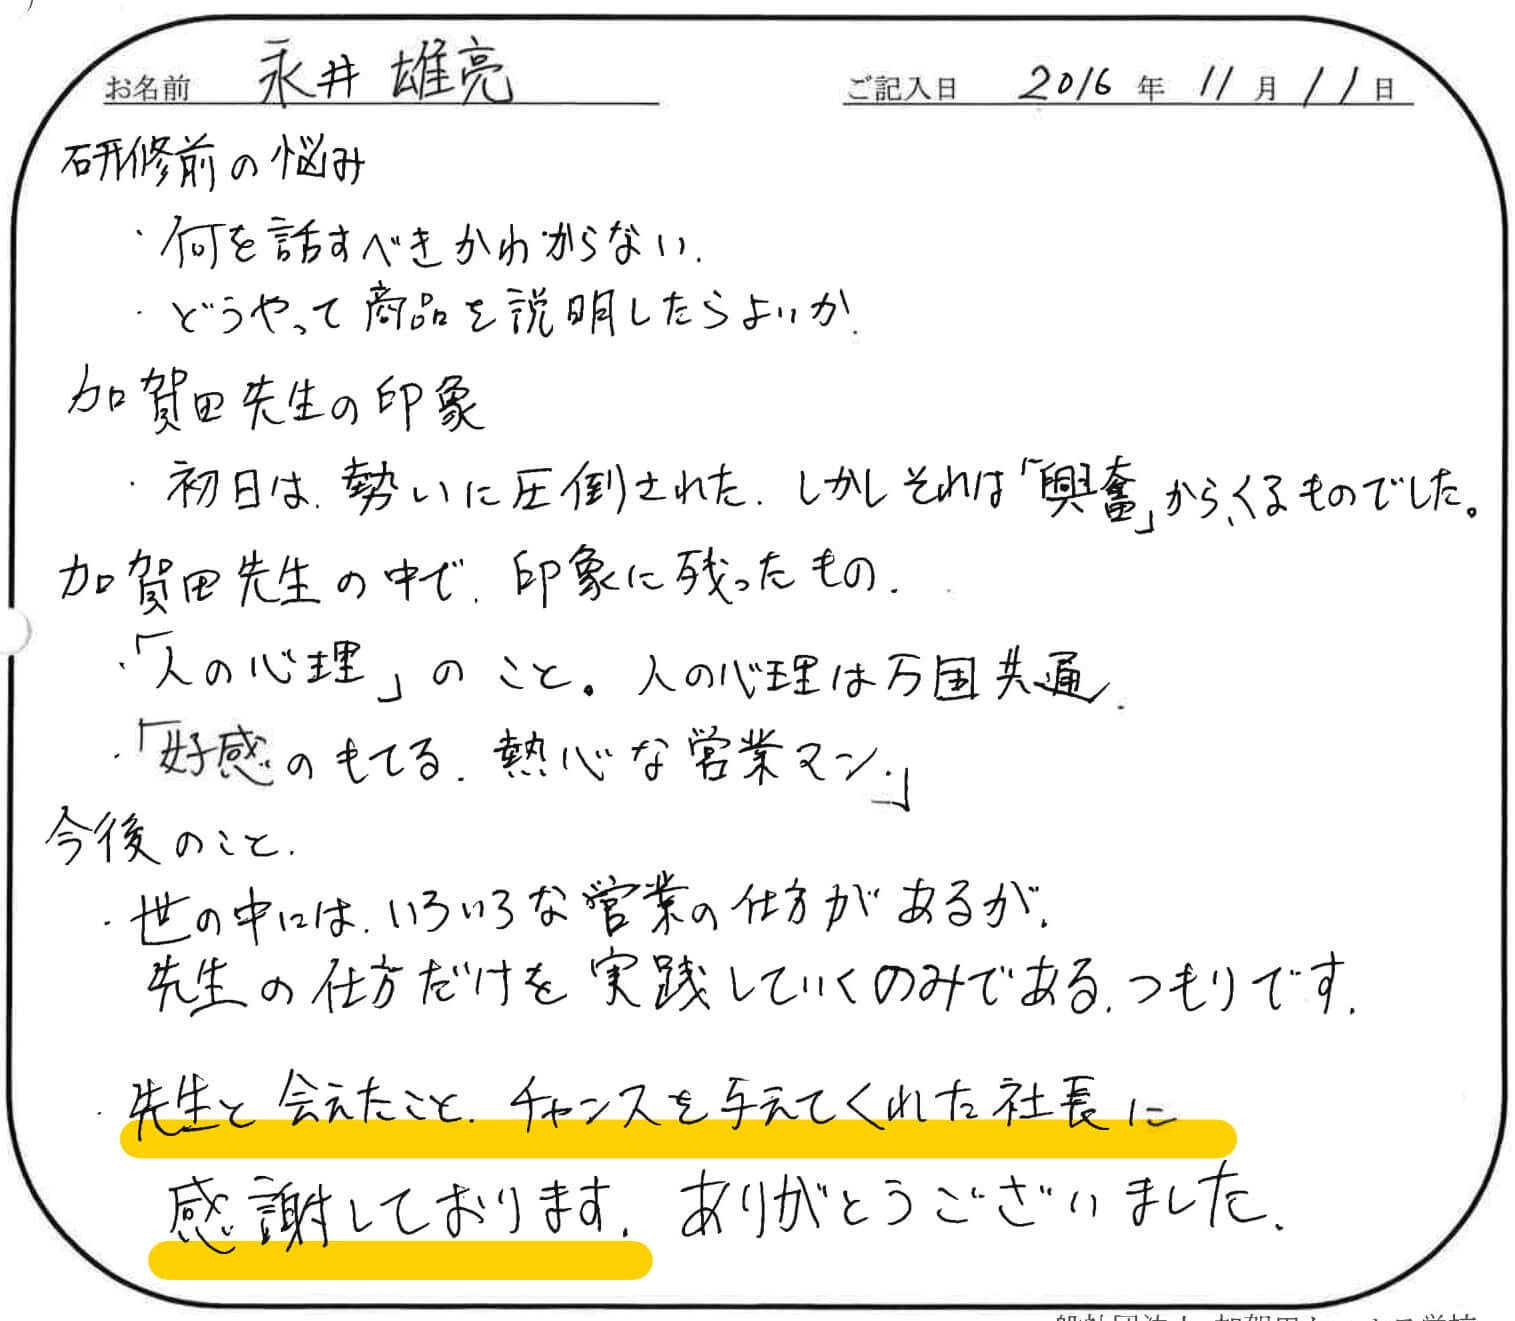 お名前 永井 雄亮 ご記入日 2016 年 11 月 11 日
研修前の悩み
・何を話すべきかわからない.
・どうやって商品を説明したらよいか.
加賀田先生の印象
・初日は、勢いに圧倒された. しかしそれは「興奮」からくるものでした。
加賀田先生の中で、印象に残ったもの.
・「人の心理」のこと。人の心理は万国共通.
・「好感のもてる、熱心な営業マン.」
今後のこと.
・世の中には、いろいろな営業の仕方があるが、
先生の仕方だけを実践していくのみである、つもりです.
・先生と会えたこと、チャンスを与えてくれた社長に
感謝しております. ありがとうございました.